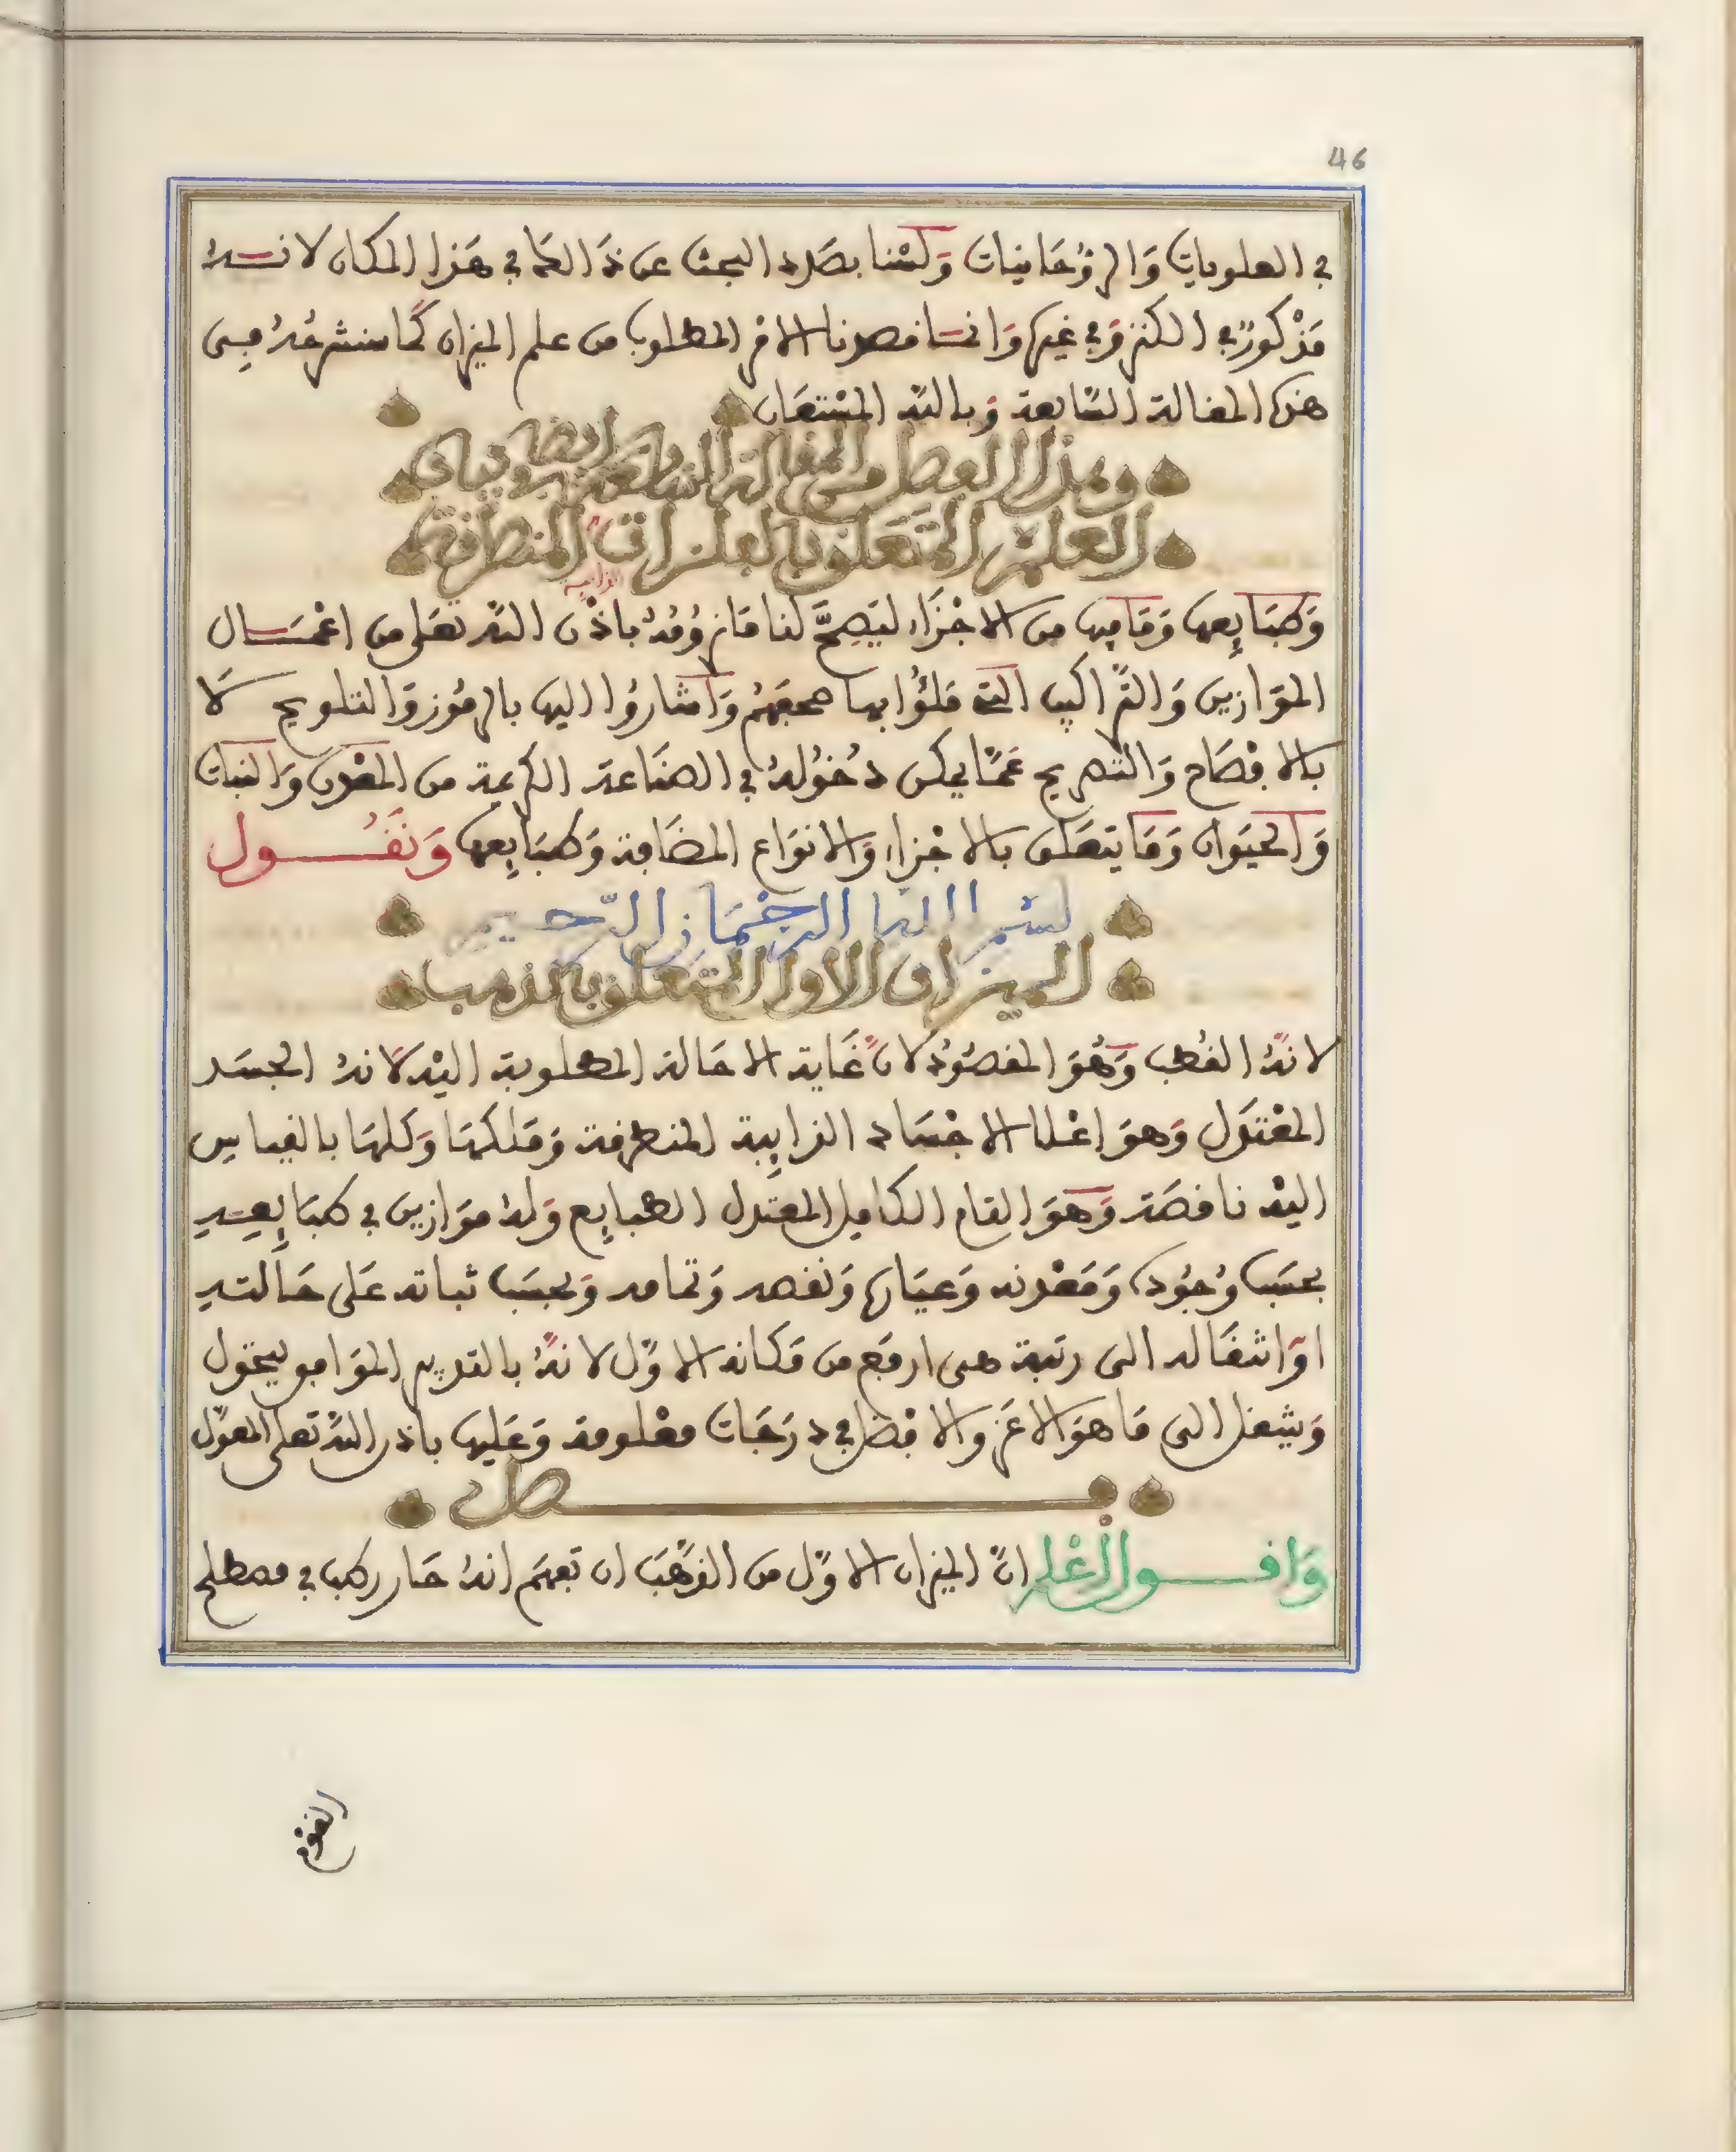 46
في العلويات والروحانيات ولسنا بصدد البحث عن ذالك في هذا المكان لانـــه
مذكور في الكنز وفي غيره وانما قصدنا الامر المطلوب من علم الميزان كما سنشرحه في
هذه المقالة السابعة وبالله المستعان
وهذا الفصل من المقالة السابعة ايضا وبيان
العلم المتعلق بالفلزات المنطرقة
الذايبة
وطبايعها وما فيها من الاجزاء ليصح لنا ما نرومه باذن الله تعلى من اعمــال
الموازين والتراكيب التي ملؤا بها صحفهم واشاروا اليها بالرموز والتلويح لا
بالافصاح والتصريح عما يمكن دخوله في الصناعة الكريمة من المعدن والنبات
والحيوان وما يتعلق بالاجزاء والانواع المضافة وطبايعها ونقـــول
بسم الله الرحمان الرحيم
الميزان الاول المتعلق بالذهب
لانه القطب وهو المقصود لان غاية الاحالة المطلوبة اليه لانه الجسد
المعتدل وهو اعلا الاجساد الذايبة المنطرقة وملكها وكلها بالقياس
اليه ناقصة وهو التام الكامل المعتدل الطبايع وله موازين في طبايعـه
بحسب وجوده ومعدنه وعياره ونقصه وتمامه وبحسب ثباته على حالته
او انتقاله الى رتبة هي ارفع من مكانه الاول لانه بالتدبير الموافق يتحول
وينتقل الى ما هو الاعز والافضل في درجات معلومة وعليها باذن الله تعلى المعول
فـــــصل
واقـــول اعلم ان الميزان الاول من الذهب ان تعلم انه حار رطب في مصطلح
القوم